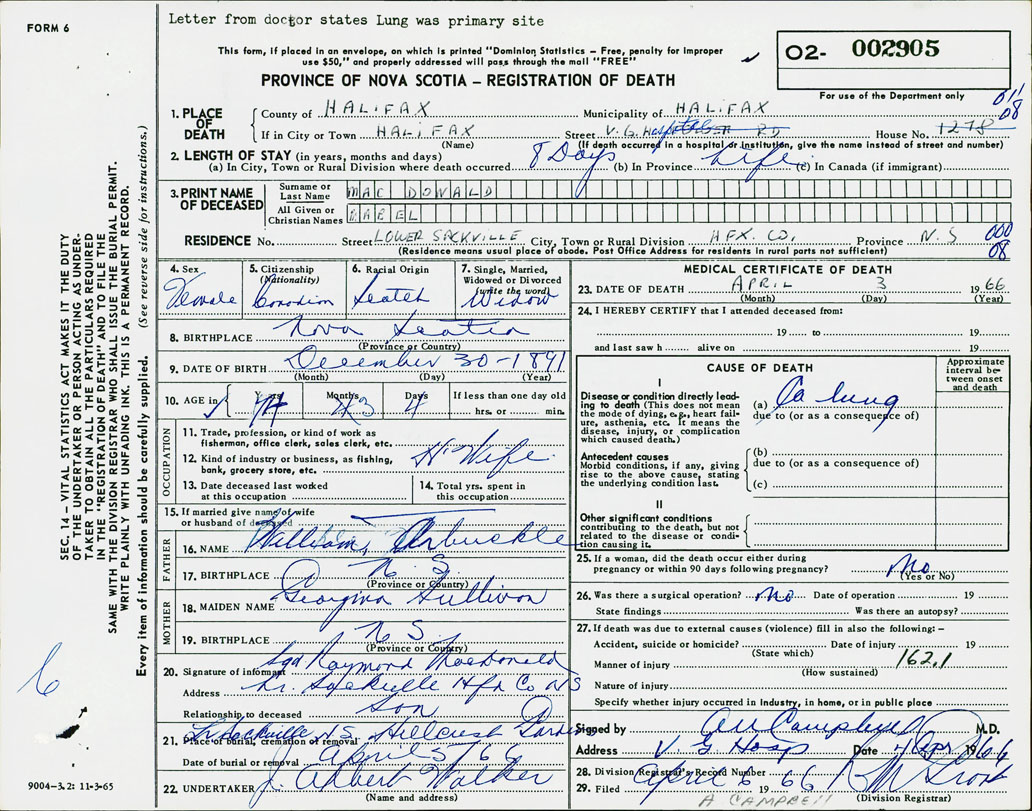 FORM 6
Letter from doctor states Lung was primary site
This form, if placed in an envelope, on which is printed "Dominion Statistics – Free, penalty for improper
use $50," and properly addressed will pass through the mail "FREE"
PROVINCE OF NOVA SCOTIA – REGISTRATION OF DEATH
O2- 002905
For use of the Department only
011
08
1. PLACE OF DEATH
County of HALIFAX Municipality of HALIFAX
If in City or Town HALIFAX Street V. G. Hospital RD House No. 1278
(Name) (If death occurred in a hospital or institution, give the name instead of street and number)
2. LENGTH OF STAY (in years, months and days)
(a) In City, Town or Rural Division where death occurred 8 Days (b) In Province Life (c) In Canada (if immigrant)
3. PRINT NAME OF DECEASED
Surname or Last Name MAC DONALD
All Given or Christian Names MABEL
RESIDENCE No. Street LOWER SACKVILLE City, Town or Rural Division HFX. CO, Province N.S
000
08
(Residence means usual place of abode. Post Office Address for residents in rural parts not sufficient)
4. Sex Female
5. Citizenship (Nationality) Canadian
6. Racial Origin Scotch
7. Single, Married, Widowed or Divorced (write the word) Widow
8. BIRTHPLACE Nova Scotia
(Province or Country)
9. DATE OF BIRTH December 30-1891
(Month) (Day) (Year)
10. AGE in Years 74 Months 3 Days 4 If less than one day old
hrs. or min.
OCCUPATION
11. Trade, profession, or kind of work as
fisherman, office clerk, sales clerk, etc.
H. Wife
12. Kind of industry or business, as fishing,
bank, grocery store, etc.
13. Date deceased last worked
at this occupation
14. Total yrs. spent in
this occupation
15. If married give name of wife
or husband of deceased
FATHER
16. NAME William Arbuckle
17. BIRTHPLACE N. S.
(Province or Country)
MOTHER
18. MAIDEN NAME Georgina Sullivan
19. BIRTHPLACE N S.
(Province or Country)
20. Signature of informant Sgd Raymond MacDonald
Address Lr. Sackville Hfx Co NS
Relationship to deceased Son
21. Place of burial, cremation or removal Lr Sackville N.S. Hillcrest Gardens
Date of burial or removal April 5 66
22. UNDERTAKER J. Albert Walker
(Name and address)
MEDICAL CERTIFICATE OF DEATH
23. DATE OF DEATH APRIL 3 1966
(Month) (Day) (Year)
24. I HEREBY CERTIFY that I attended deceased from:
19 to 19
and last saw h alive on 19
CAUSE OF DEATH
Approximate interval between onset and death
I
Disease or condition directly leading to death (This does not
mean the mode of dying, e.g., heart failure, asthenia, etc. It means the
disease, injury, or complication
which caused death.)
(a) Ca lung
due to (or as a consequence of)
Antecedent causes
Morbid conditions, if any, giving
rise to the above cause, stating
the underlying condition last.
(b)
due to (or as a consequence of)
(c)
II
Other significant conditions
contributing to the death, but not
related to the disease or condition causing it.
25. If a woman, did the death occur either during
pregnancy or within 90 days following pregnancy? No
(Yes or No)
26. Was there a surgical operation? No Date of operation 19
State findings Was there an autopsy?
27. If death was due to external causes (violence) fill in also the following: –
Accident, suicide or homicide? Date of injury 19
(State which)
162.1
Manner of injury
(How sustained)
Nature of injury
Specify whether injury occurred in Industry, in home, or in public place
Signed by A Campbell M.D.
Address V. G Hosp Date 4 Apr 1966
28. Division Registrar's Record Number
29. Filed April 6 1966
A CAMPBELL
(Division Registrar)
SEC. 14 – VITAL STATISTICS ACT MAKES IT THE DUTY
OF THE UNDERTAKER OR PERSON ACTING AS UNDER-
TAKER TO OBTAIN ALL THE PARTICULARS REQUIRED
IN THE "REGISTRATION OF DEATH" AND TO FILE THE
SAME WITH THE DIVISION REGISTRAR WHO SHALL ISSUE THE BURIAL PERMIT.
WRITE PLAINLY WITH UNFADING INK. THIS IS A PERMANENT RECORD.
Every item of information should be carefully supplied. (See reverse side for instructions.)
6
9004-3.2: 11-3-65